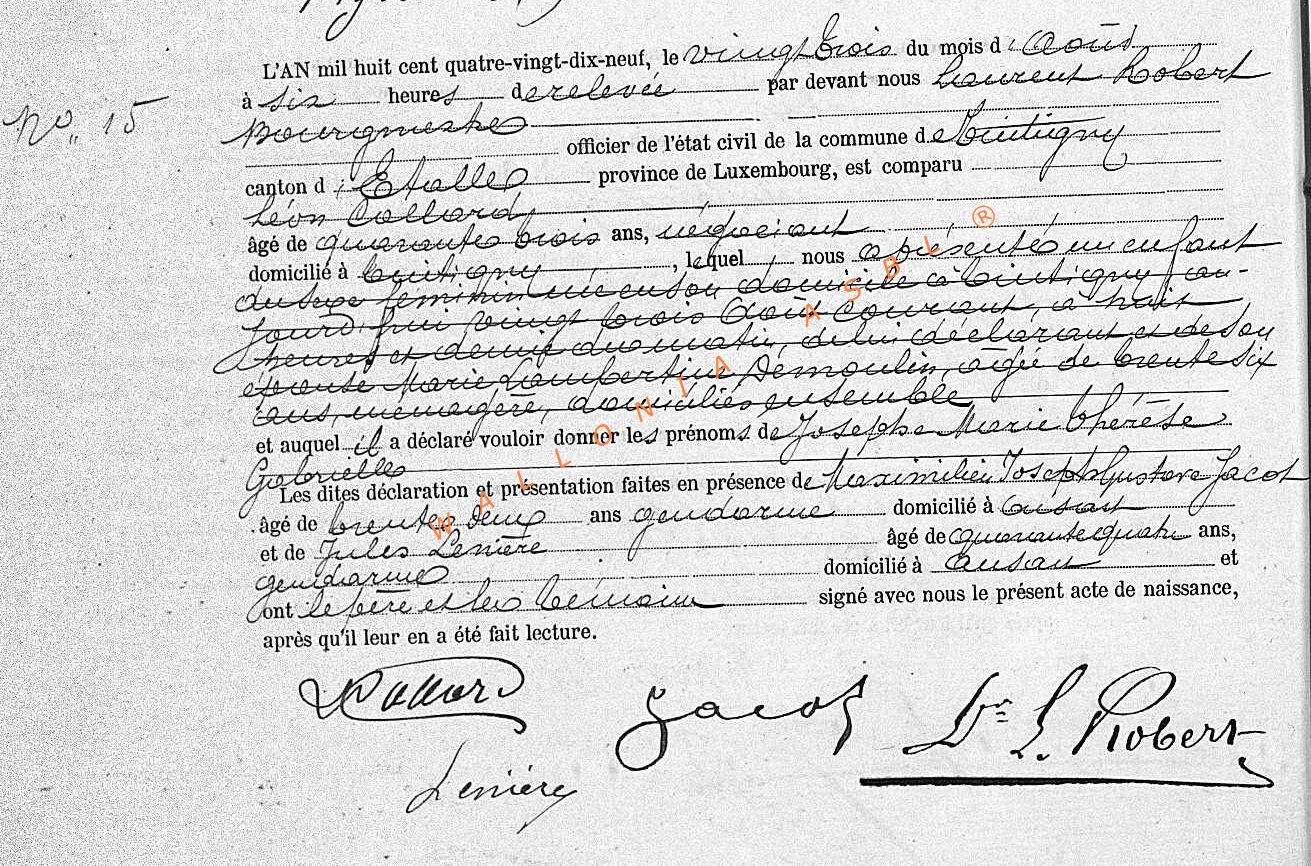 No 15
L'AN mil huit cent quatre-vingt-dix-neuf, le vingt trois du mois d'Août
à six heures de relevée par devant nous Laurent Robert
Bourgmestre
officier de l'état civil de la commune de Tintigny
canton d'Etalle province de Luxembourg, est comparu
Léon Collard
âgé de quarante trois ans, négociant
domicilié à Tintigny, lequel nous a présenté un enfant
du sexe féminin née en son domicile à Tintigny, au-
jourd'hui vingt trois Août courant, à huit
heures et demie du matin, de lui déclarant et de son
épouse Marie Lambertine Demoulin, âgée de trente six
ans, ménagère, domiciliés ensemble
et auquel il a déclaré vouloir donner les prénoms de Josephe Marie Thérèse
Gabrielle
Les dites déclaration et présentation faites en présence de Maximilien Joseph Gustave Jacot
âgé de trente deux ans gendarme domicilié à
et de Jules Lenière âgé de quarante quatre ans,
gendarme domicilié à et
ont le père et les témoins signé avec nous le présent acte de naissance,
après qu'il leur en a été fait lecture.
LCollard Jacot Dr L. Robert
Lenière
WALLONIA ASBL ®